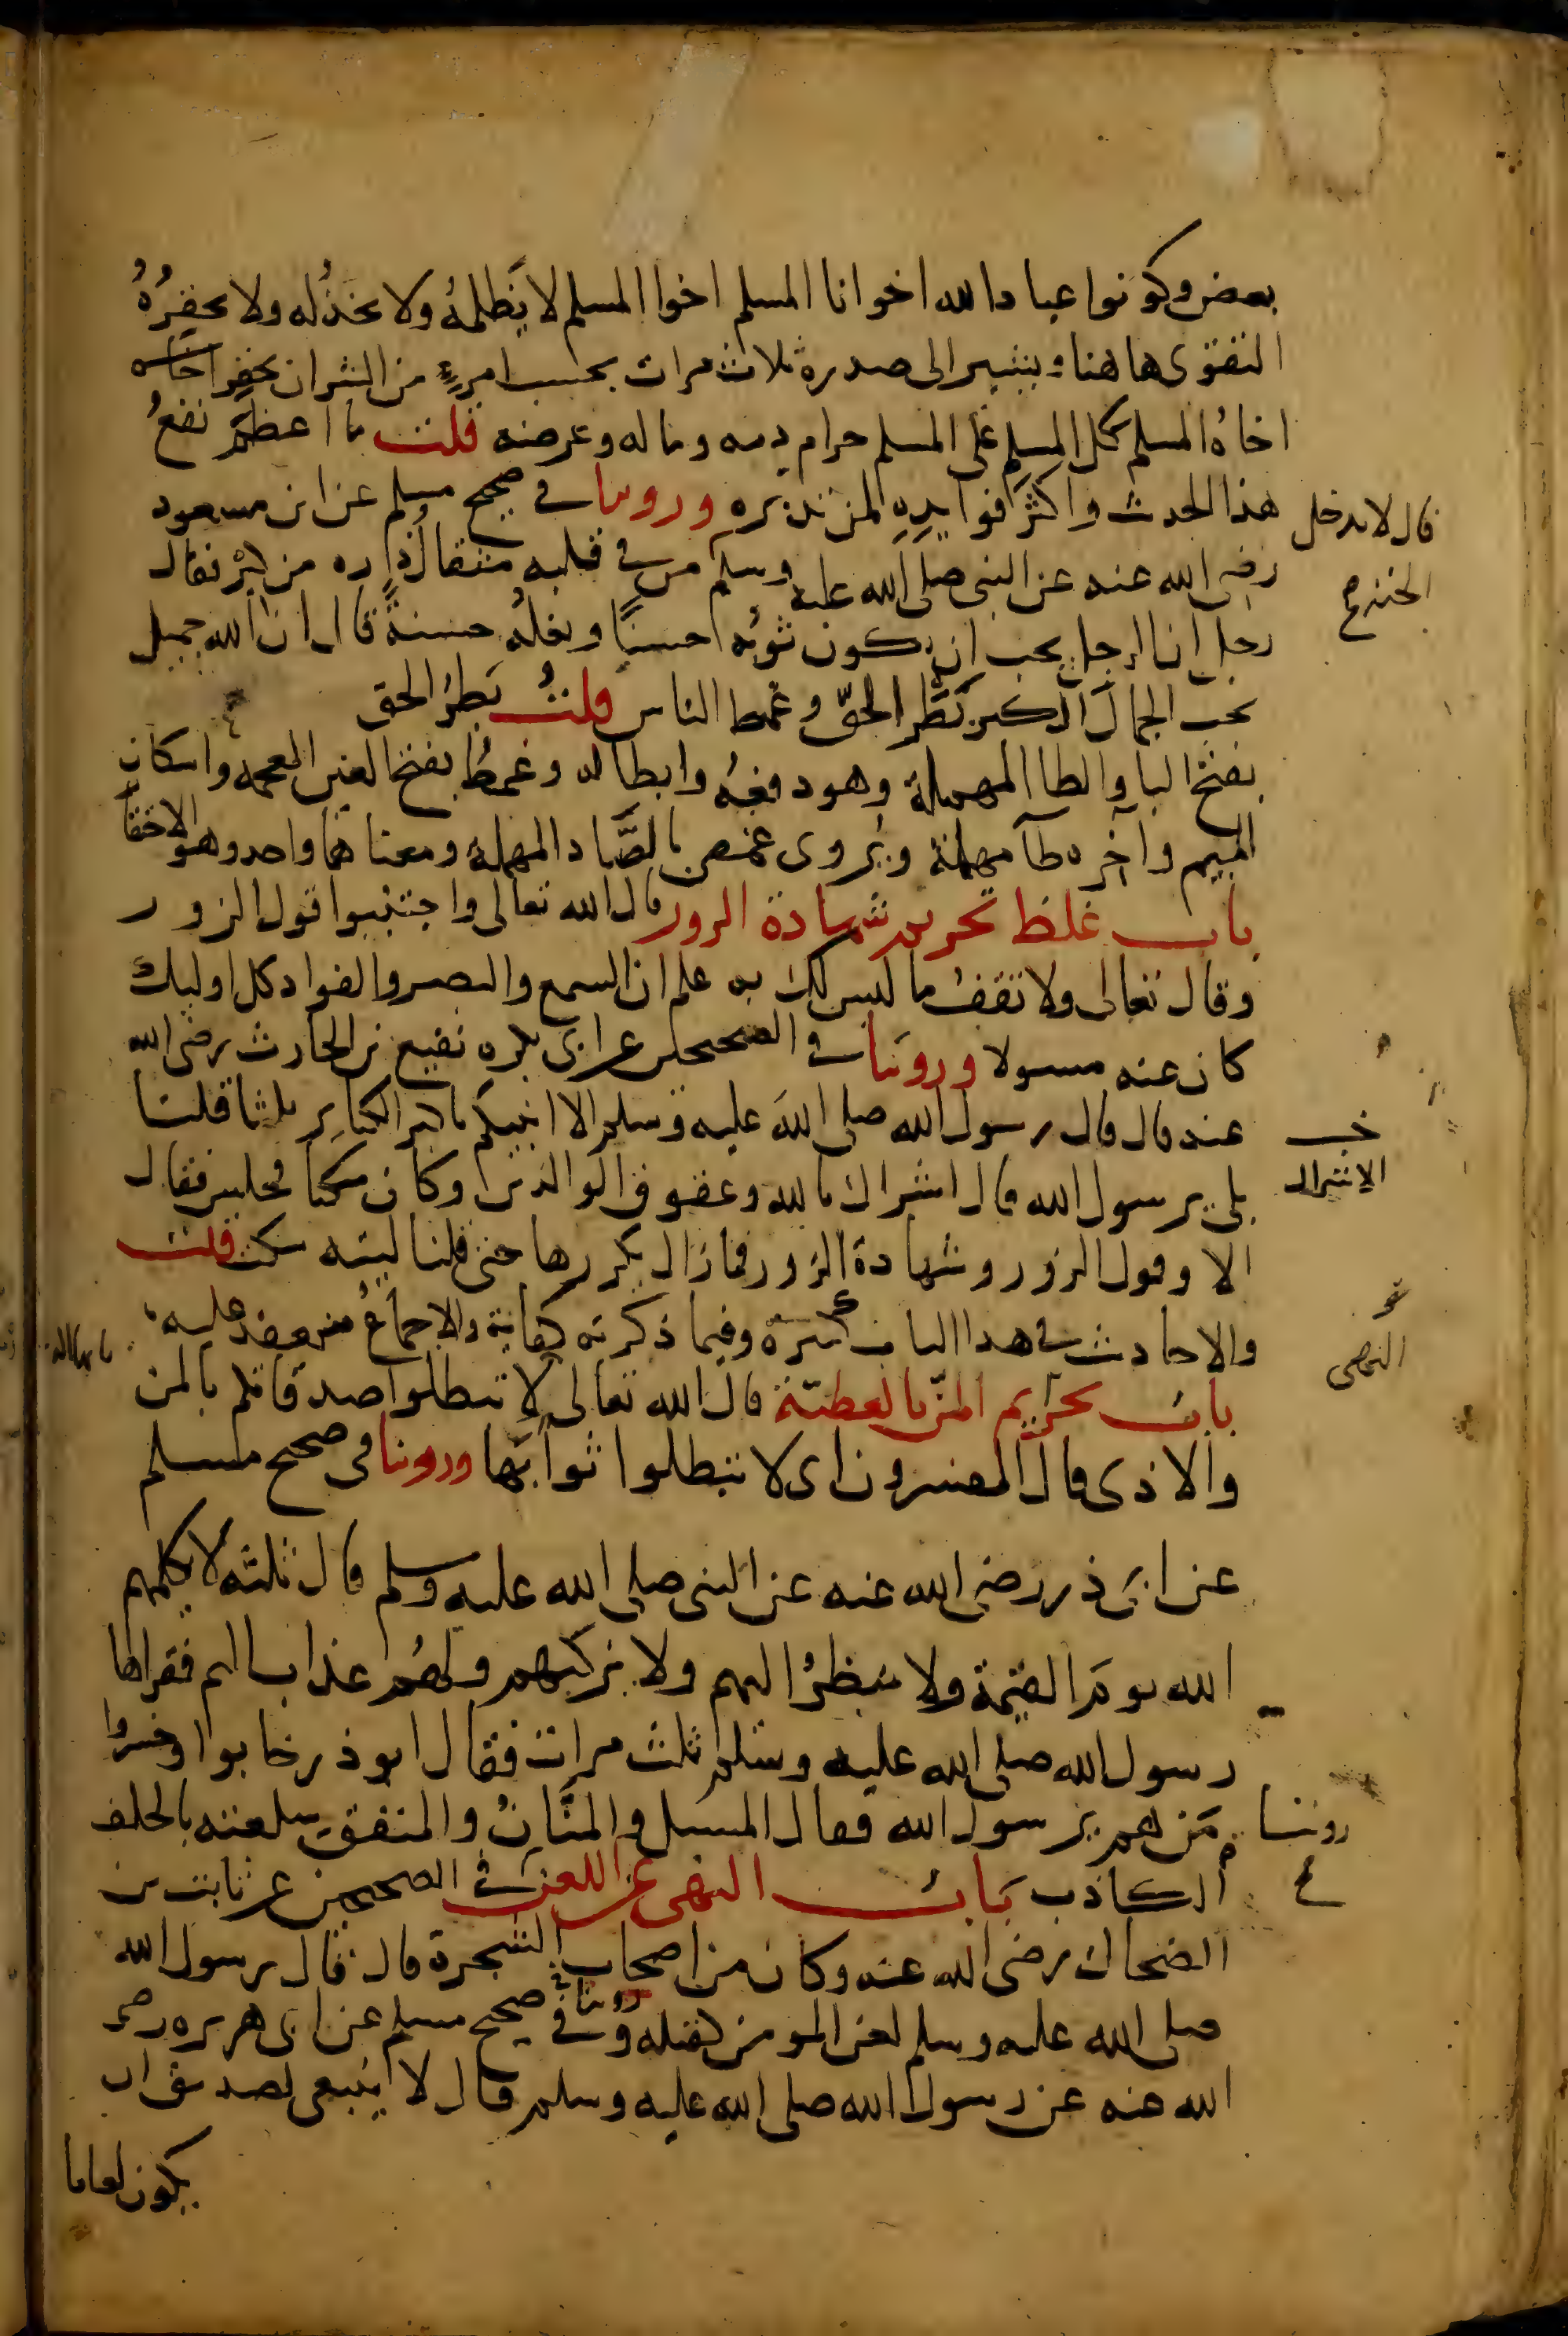 بعض وكونوا عباد الله اخوانا المسلم اخوا المسلم لا يَظلمهُ ولا يخذُله ولا يحقِرُهُ
التقوى هاهنا ويشير الى صدره ثلاث مرات بحسب امرءٍ من الشر ان يحقِر اخاه
اخاهُ المسلم كل المسلم على المسلم حرام دمه وماله وعرضه قلت ما اعظم نفعُ
هذا الحدث واكثر فوايدِهِ لمن تدبره وروينا في صحيح مسلم عن ابن مسعود
قال لا يدخل
الجنه صح
رضى الله عنه عن النبى صلى الله عليه وسلم من في قلبه مثقال ذره من كبْر فقال
رجل ان الرجل يحب ان يكون ثوبُه حسنًا ونعلُه حسنةً قال ان الله جميل
يحب الجمالَ الكبر بَطَر الحقّ وغمط الناس قلتُ بَطَرُ الحق
بفتح البا والطا المهملة وهو دفعُه وابطاله وغمطُ بفتح الغين المعجمه واسكان
الميم وآخره طآ مهملة ويُروى غمص بالصَّاد المهملة ومعناهما واحد وهو الاحتقا
باب غلظ تحريم شهادة الزور قال الله تعالى واجتنبوا قول الزور
وقال تعالى ولا تقفُ ما ليس لك به علم ان السمع والبصر والفواد كل اوليك
كان عنه مسولا وروينا في الصحيحين عن ابى بكره نفيع بن الحارث رضى الله
عنه قال قال رسول الله صلى الله عليه وسلم الا انبيكم باكبر الكبايِر ثلثا قلنا
خـ
الاشراك
بلى يرسول الله قال اشراك بالله وعقوق الوالدين وكان متكئا فجلس فقال
الا وقول الزور وشهادة الزور فما زال يكررها حتى قلنا ليته سكت قلت
والاحاديث في هذا الباب كثيرة وفيما ذكرته كفاية والاجماعُ منعقد عليه
النهى
باب تحريم المنّ بالعطيّة قال الله تعالى لا تبطلوا صدقاتكم بالمن
والاذى قال المفسرون اى لا تبطلوا ثوابَها وروينا فى صحيح مسلم
عن ابى ذر رضى الله عنه عن النبى صلى الله عليه وسلم قال ثلثه لا يكلمهم
الله يومَ القيمة ولا ينظرُ اليهم ولا يزكيهم ولهُم عذاب اليم فقراها
رسول الله صلى الله عليه وسلم ثلث مرات فقال ابو ذر خابوا وخسروا
مَن هم يرسول الله فقال المسبل والمنّانُ والمنفق سلعته بالحلف
روينا
الكاذب باب النهى عن اللعن في الصحيحين عن ثابت بن
الضحاك رضى الله عنه وكان من اصحاب الشجرة قال قال رسول الله
صلى الله عليه وسلم لعن المومن كقتله وروينا في صحيح مسلم عن ابى هريره رضى
الله عنه عن رسول الله صلى الله عليه وسلم قال لا ينبغى لصديق ان
يكون لعانا